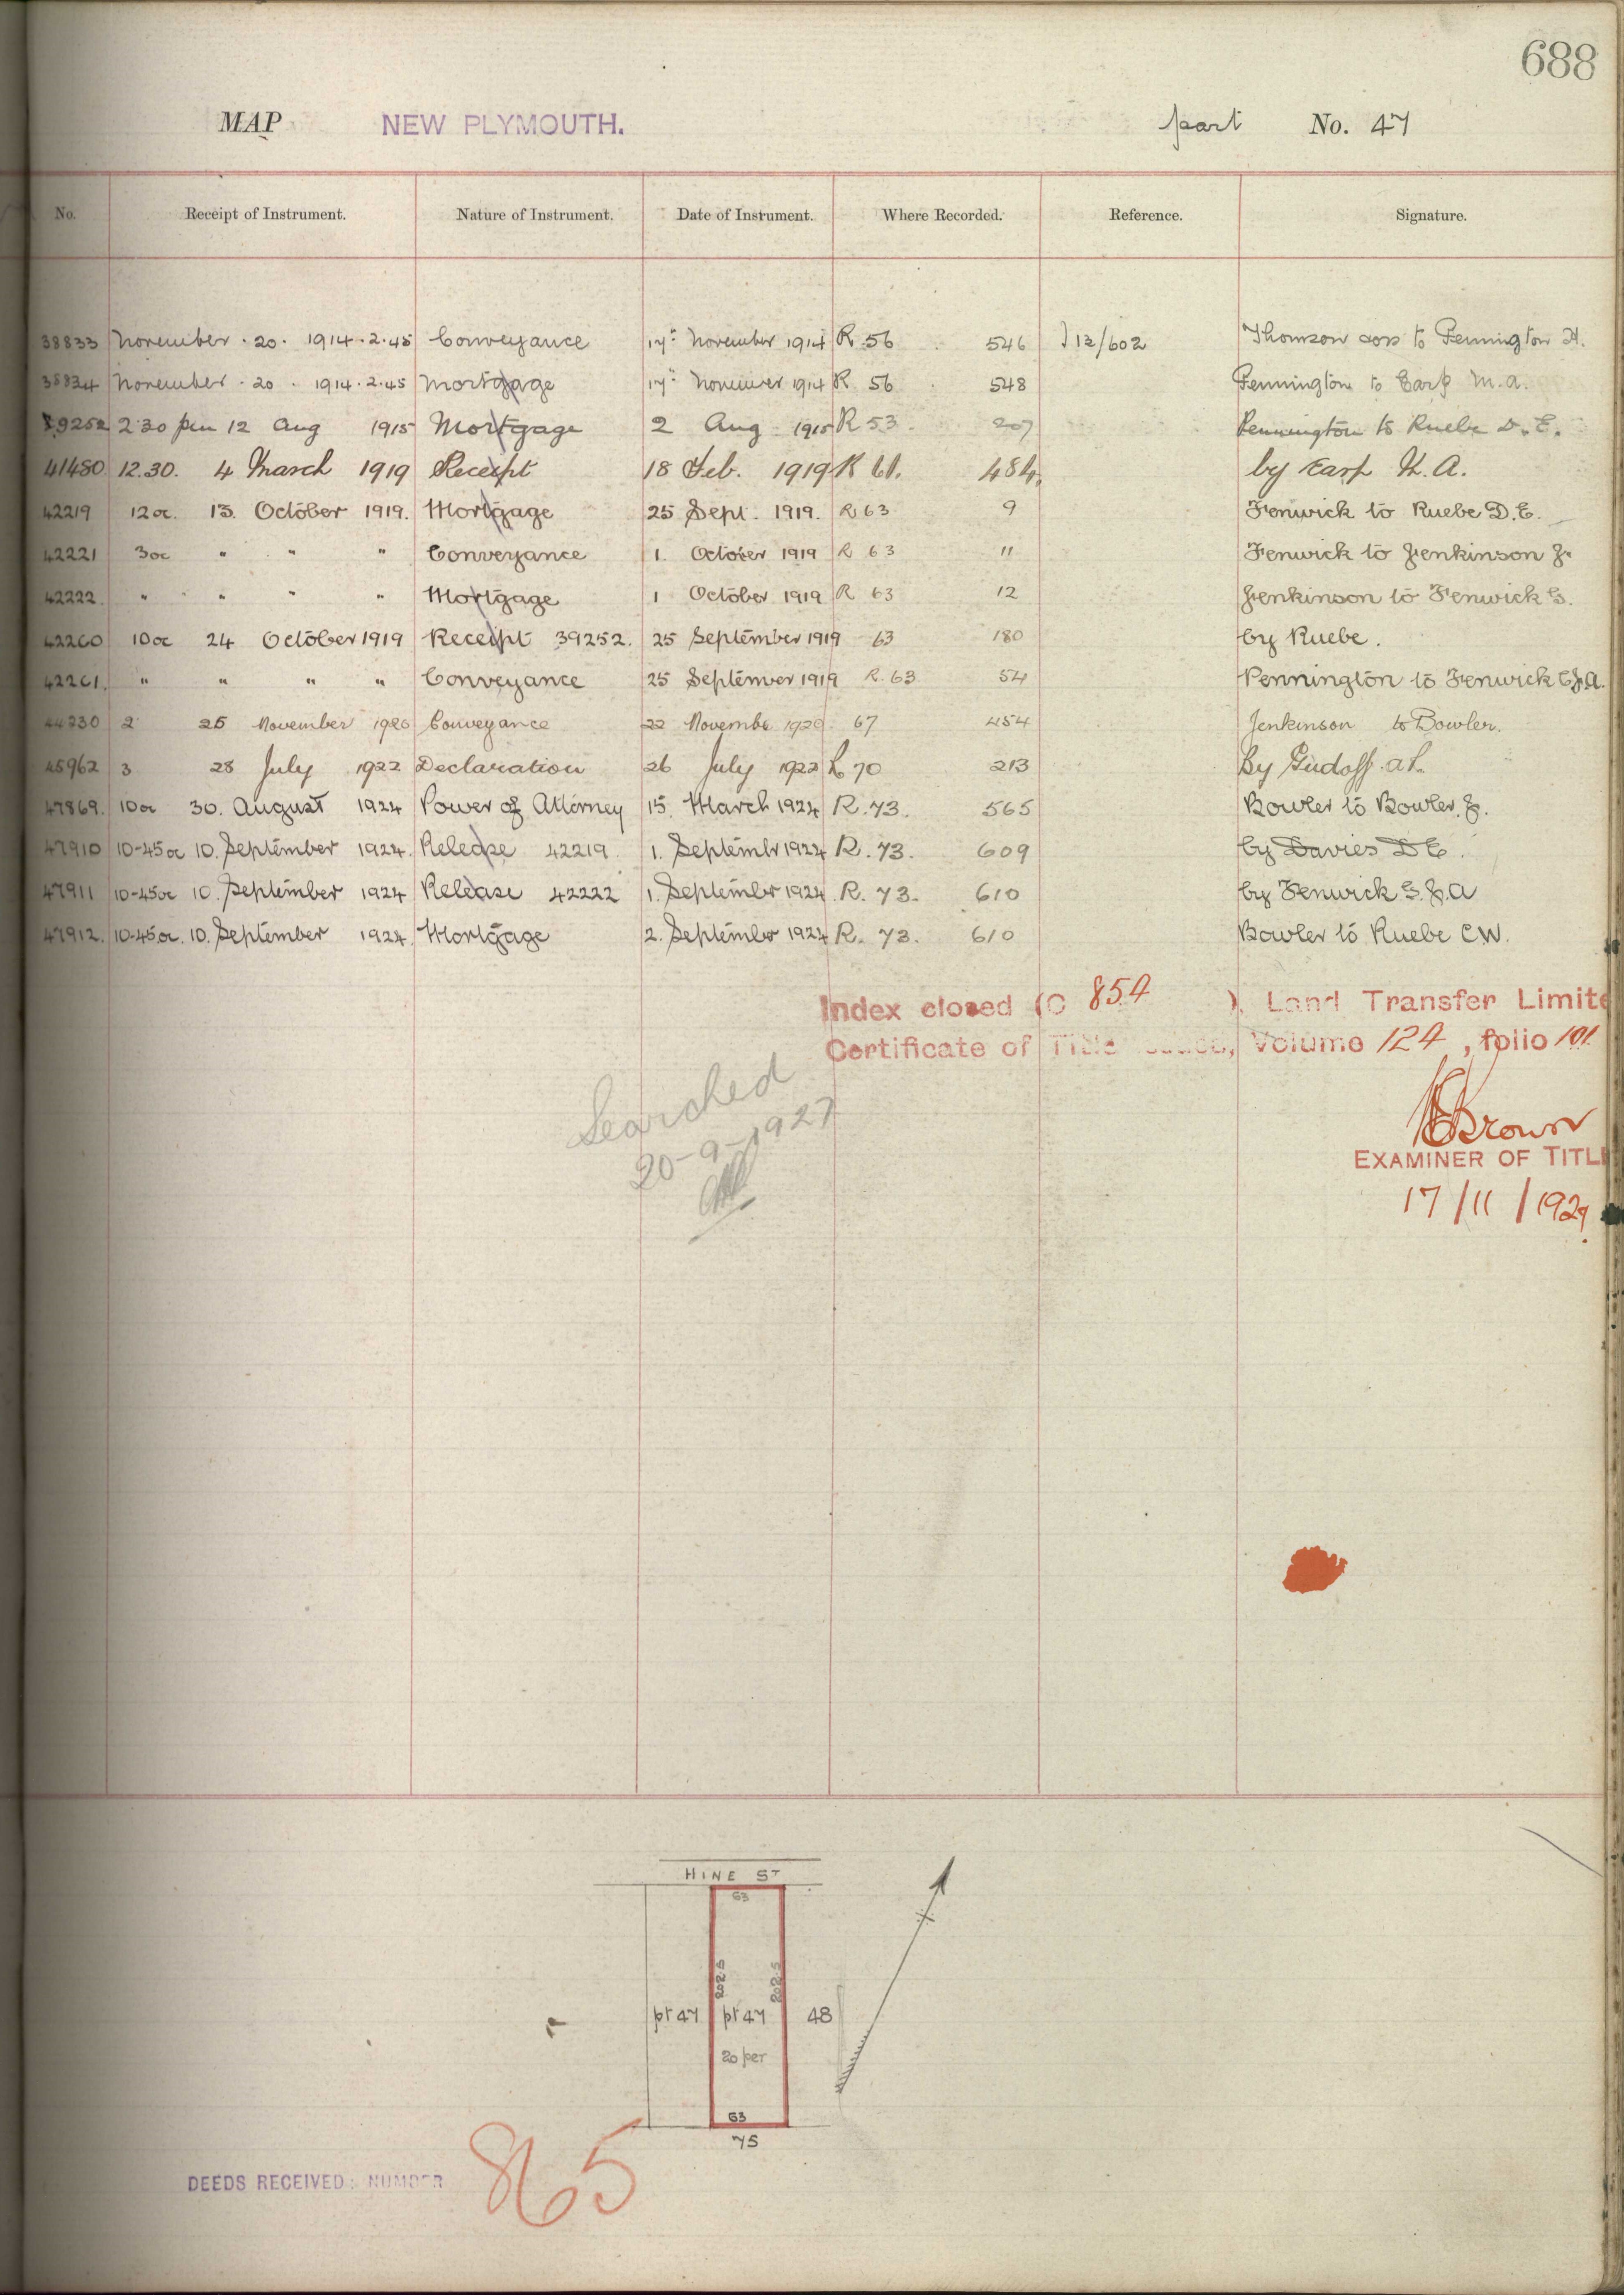 688
MAP NEW PLYMOUTH. part No. 47
No. Receipt of Instrument. Nature of Instrument. Date of Instrument. Where Recorded. Reference. Signature.
38833 November . 20 . 1914 . 2.45 Conveyance 17th November 1914 R 56 546 I 12/602 Thomson to Pennington A.
38834 November . 20 . 1914 . 2.45 Mortgage 17th November 1914 R 56 548 Pennington to Earp M.A.
39252 2 30 pm 12 Aug 1915 Mortgage 2 Aug 1915 R 53 207 Pennington to Ruebe D.E.
41480 12.30. 4 March 1919 Receipt 18 Feb. 1919 R 61. 484. by Earp M.A.
42219 12 oc. 13. October 1919. Mortgage 25 Sept. 1919. R 63 9 Fenwick to Ruebe D.E.
42221 3 oc " " " Conveyance 1. October 1919 R 63 11 Fenwick to Jenkinson J.
42222. " " " " Mortgage 1 October 1919 R 63 12 Jenkinson to Fenwick G.
42260 10 oc 24 October 1919 Receipt 39252. 25 September 1919 63 180 by Ruebe.
42261. " " " " Conveyance 25 September 1919 R. 63 54 Pennington to Fenwick G.J.A.
44330 2 25 November 1920 Conveyance 22 November 1920. 67 454 Jenkinson to Bowler.
45962 3 28 July 1922 Declaration 26 July 1922 R 70 213 By
47869. 10 oc 30. August 1924 Power of Attorney 15. March 1924 R. 73. 565 Bowler to Bowler. J.
47910 10-45 oc 10. September 1924. Release 42219. 1. September 1924 R. 73. 609 by Davies D E.
47911 10-45 oc 10. September 1924 Release 42222 1. September 1924. R. 73. 610 by Fenwick G.J.A
47912. 10-45 oc. 10. September 1924. Mortgage 2. September 1924 R. 73. 610 Bowler to Ruebe C W.
Index closed (C 854 ). Land Transfer Limite
Certificate of Title Volume 124, folio 101
Searched
20-9-1927
Brown
EXAMINER OF TITL
17/11/1927.
HINE ST
63
202.5 202.5
pt 47 pt 47 48
20 per
63
75
DEEDS RECEIVED: NUMBER 865